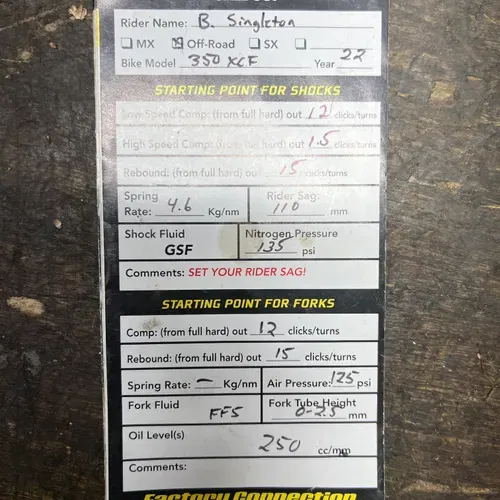 Rider Name: B. Singleton
MX Off-Road SX
Bike Model 350 XCF Year 22
STARTING POINT FOR SHOCKS
Low Speed Comp: (from full hard) out 12 clicks/turns
High Speed Comp: (from full hard) out 1.5 clicks/turns
Rebound: (from full hard) out 15 clicks/turns
Spring Rate: 4.6 Kg/nm
Rider Sag: 110 mm
Shock Fluid
GSF
Nitrogen Pressure
135 psi
Comments: SET YOUR RIDER SAG!
STARTING POINT FOR FORKS
Comp: (from full hard) out 12 clicks/turns
Rebound: (from full hard) out 15 clicks/turns
Spring Rate: – Kg/nm
Air Pressure: 125 psi
Fork Fluid FF5
Fork Tube Height
0-2.5 mm
Oil Level(s)
250 cc/mm
Comments:
Factory Connection